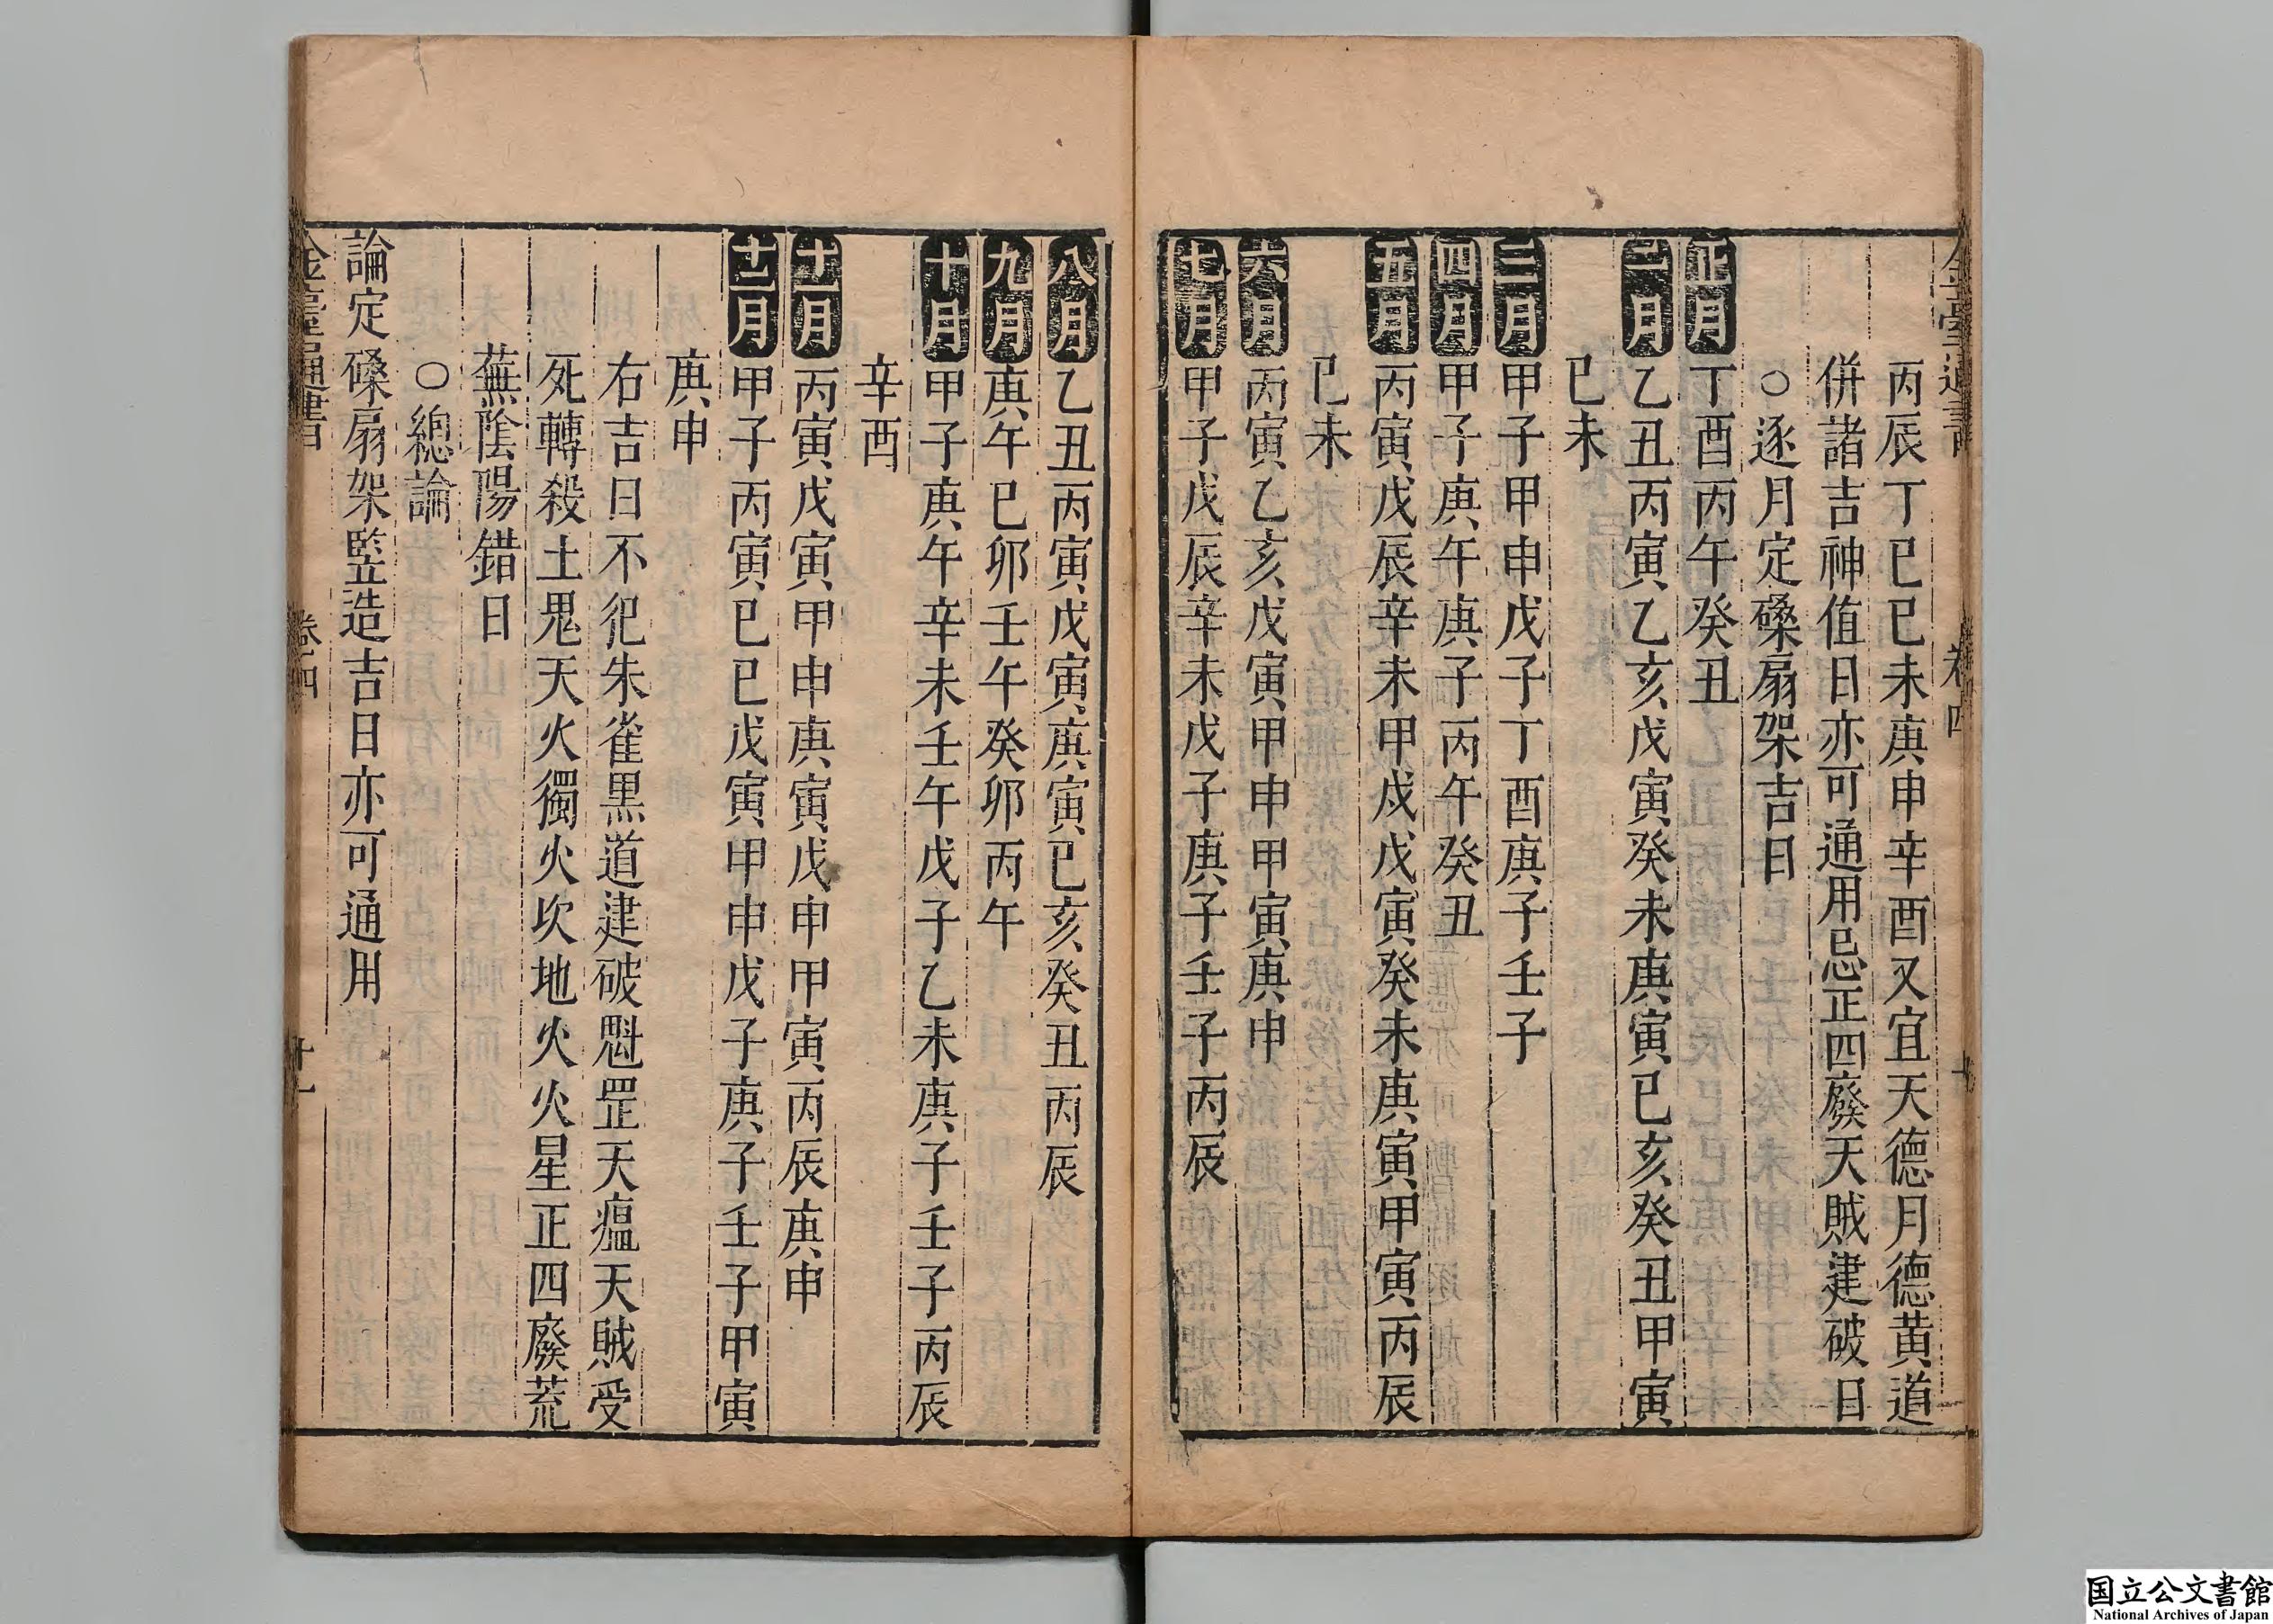 金臺通書 卷四
丙辰丁巳己未庚申辛酉又宜天德月德黃道
併諸吉神值日亦可通用忌正四廢天賊建破日
○逐月定磉扇架吉日
正月丁酉丙午癸丑
二月乙丑丙寅乙亥戊寅癸未庚寅己亥癸丑甲寅
已未
三月甲子甲申戊子丁酉庚子壬子
四月甲子庚午庚子丙午癸丑
五月丙寅戊辰辛未甲戌戊寅癸未庚寅甲寅丙辰
已未
六月丙寅乙亥戊寅甲申甲寅庚申
七月甲子戊辰辛未戊子庚子壬子丙辰
八月乙丑丙寅戊寅庚寅已亥癸丑丙辰
九月庚午已卯壬午癸卯丙午
十月甲子庚午辛未壬午戊子乙未庚子壬子丙辰
辛酉
十一月丙寅戊寅甲申庚寅戊申甲寅丙辰庚申
十二月甲子丙寅已巳戊寅甲申戊子庚子壬子甲寅
庚申
右吉日不犯朱雀黑道建破魁罡天瘟天賊受
死轉殺土鬼天火獨火次地火火星正四廢荒
蕪陰陽錯日
○總論
論定磉扇架監造吉日亦可通用
金臺通書 卷四 十一
国立公文書館
National Archives of Japan